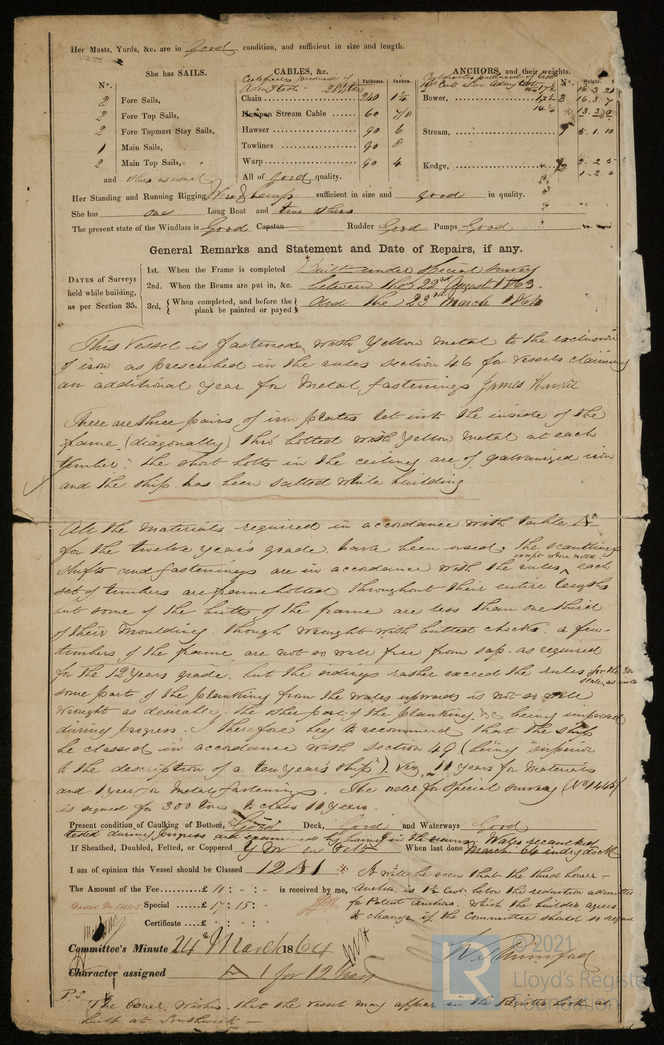 Her Masts, Yards, &c. are in Good condition, and sufficient in size and length.
She has SAILS.
CABLES, &c.
ANCHORS, and their weights.
No.
Fathoms. Inches.
No. Weight.
2 Fore Sails,
2 Fore Top Sails,
2 Fore Topmast Stay Sails,
1 Main Sails,
2 Main Top Sails,
and others as usual
Chain 240 1¼
Hempen Stream Cable 60 7/8
Hawser 90 6
Towlines 90 8
Warp 90 4
All of Good quality.
Bower, 3 16.3.7
13.3.0
Stream, 1 5.1.10
Kedge, 2 2.2.5
1.2.0
Her Standing and Running Rigging Wire & hemp sufficient in size and good in quality.
She has one Long Boat and two others
The present state of the Windlass is Good Capstan Rudder Good Pumps Good
General Remarks and Statement and Date of Repairs, if any.
DATES of Surveys
held while building,
as per Section 35.
1st. When the Frame is completed Built under Special Survey
2nd. When the Beams are put in, &c. between the 22nd August 1863.
3rd. { When completed, and before the
plank be painted or payed } and the 23rd March 1864
This Vessel is fastened with Yellow metal to the exclusion
of iron as prescribed in the rules section 46 for vessels claiming
an additional year for metal fastenings James
There are three pairs of iron plates let into the inside of the
frame (diagonally) thro bolted with Yellow metal at each
timber; the short bolts in the ceiling are of galvanized iron
and the ship has been salted while building
All the materials required in accordance with table A
for the twelve years grade have been used; the scantlings
shifts and fastenings are in accordance with the rules, except where noted. each
set of timbers are frame bolted throughout their entire lengths
but some of the butts of the frame are less than one third
of their moulding though wrought with butted chocks. a few
timbers of the frame are not so well free from sap as required
for the 12 years grade, but the sidings rather exceed the rules
some part of the planking from the wales upwards is not so well
wrought as desirable, the other part of the planking &c being improved
during progress. I therefore beg to recommend that the ship
be classed in accordance with section 49 (being "superior
to the description of a ten years ship") viz. 11 years for materials
and 1 year for metal fastenings. The notice for Special Survey (No 1445)
is signed for 300 tons to class 10 years.
Present condition of Caulking of Bottom, Good Deck, Good and Waterways Good
If Sheathed, Doubled, Felted, or Coppered Y M on felt When last done March 64 in dry dock
I am of opinion this Vessel should be Classed 12 A 1
It will be seen that the third bower
The Amount of the Fee £ 4 : - : - is received by me,
Anchor is 1½ Cwt. below the reduction admitted
Special £ 17 : 15 : -
for Patent anchors. which the builder agrees
Certificate £ - : - : -
to change if the Committee should so require
Committee's Minute 24th March 1864
Character assigned A 1 for 12 Years
© 2021
Lloyd's Register
Foundation
P.S. The Owner wishes that the vessel may appear in the Register book as
built at Southwick